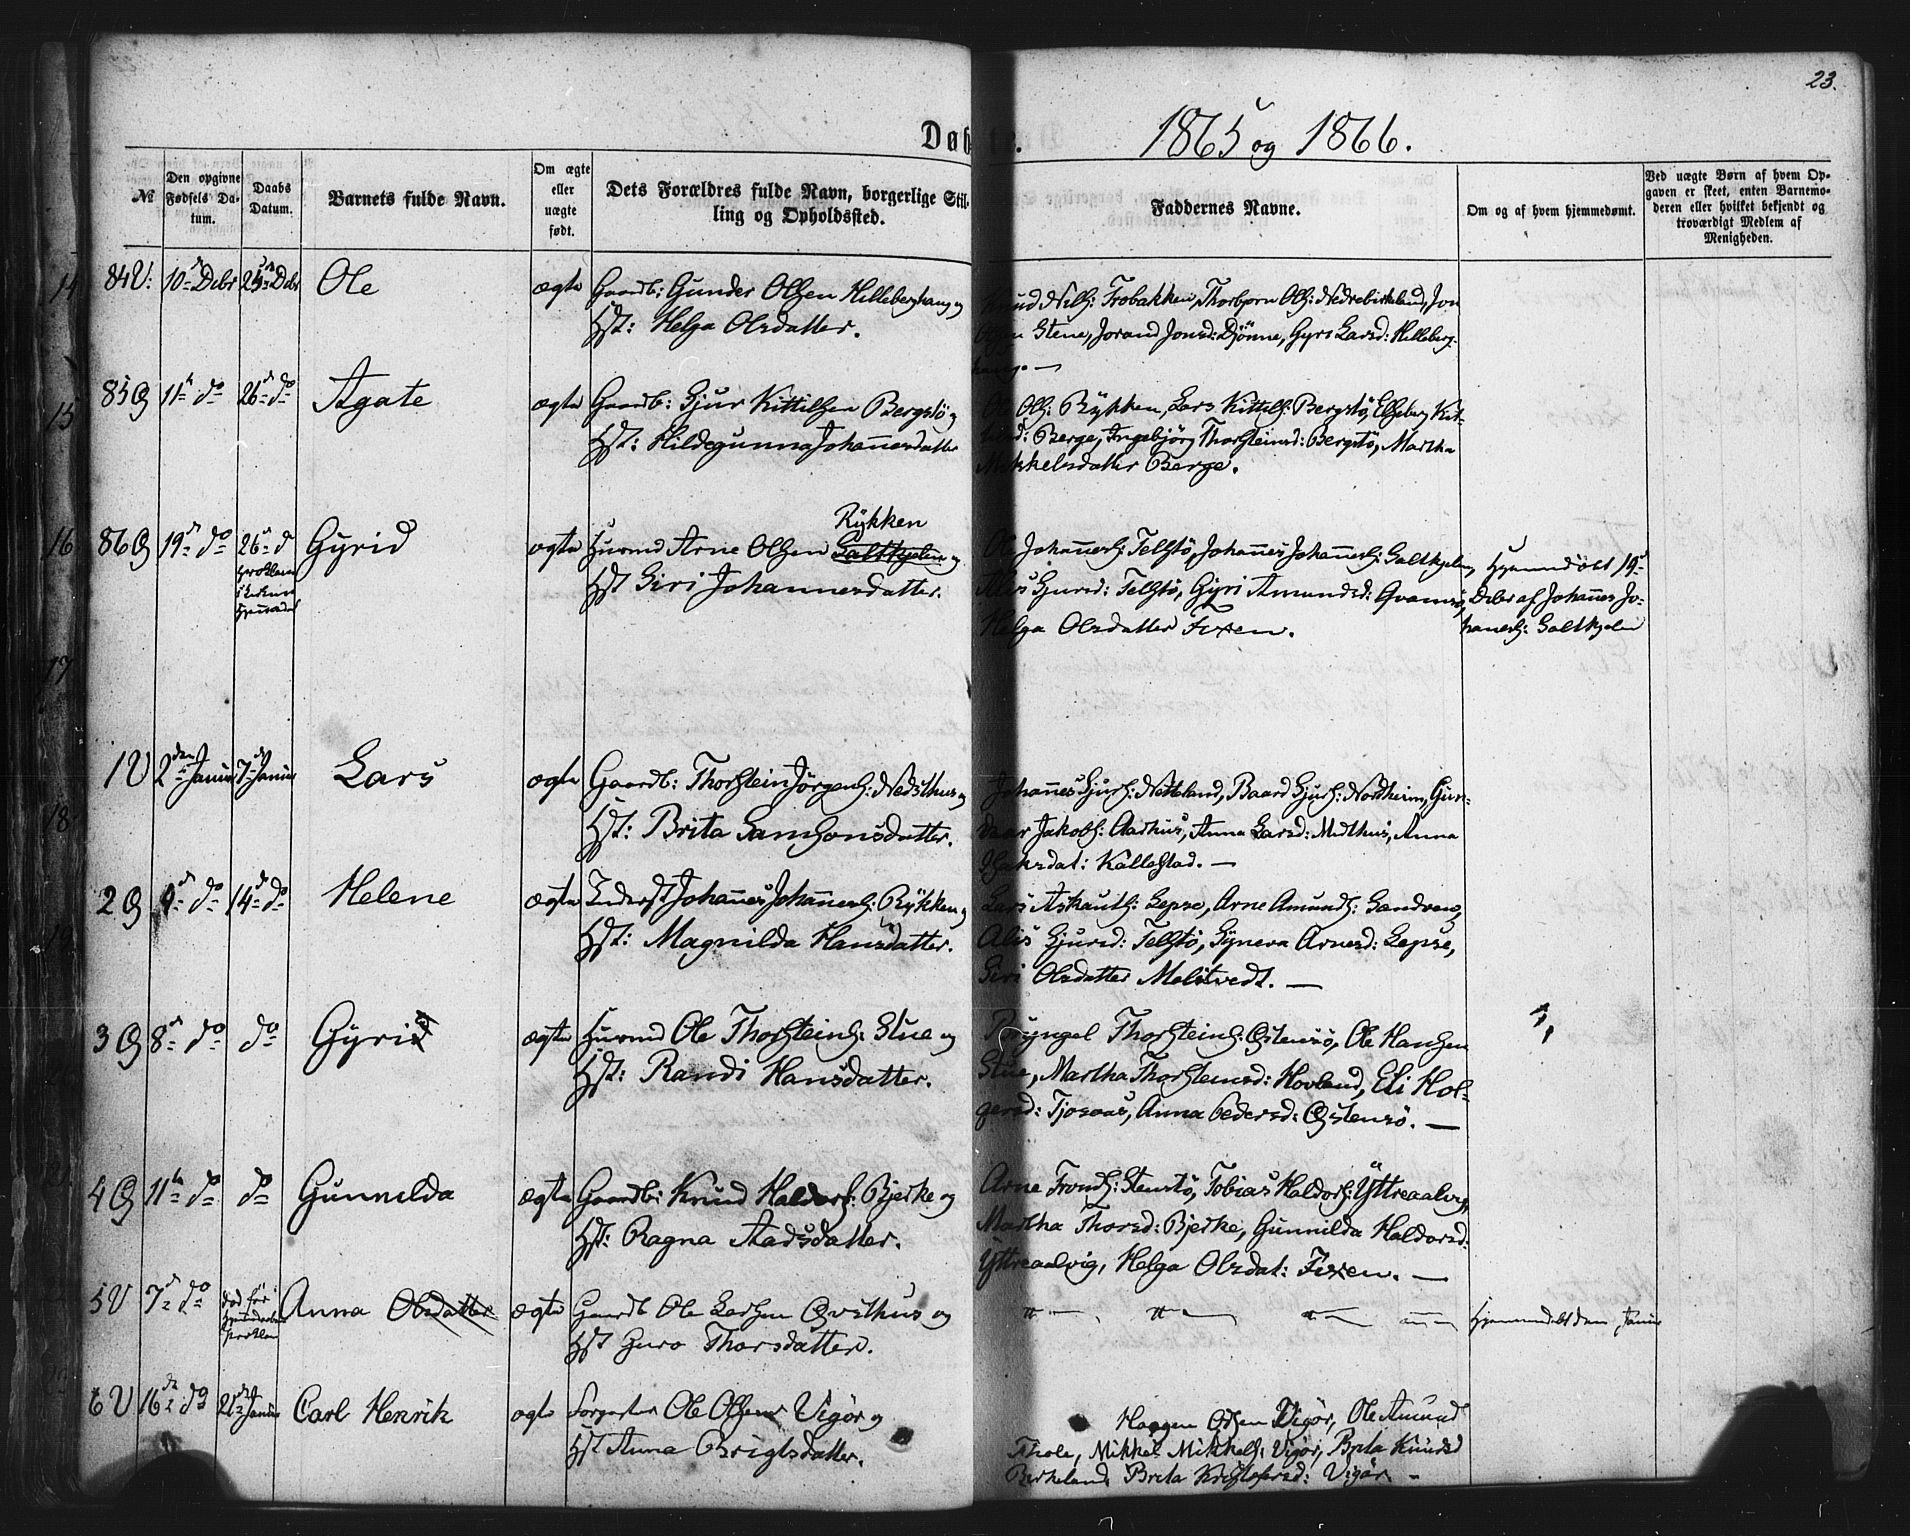 23.
Døbte. 1865 og 1866.
№
Den opgivne Fødsels Datum.
Daabs Datum.
Barnets fulde Navn.
Om ægte eller uægte født.
Dets Forældres fulde Navn, borgerlige Stilling og Opholdssted.
Faddernes Navne.
Om og af hvem hjemmedømt.
Ved uægte Børn af hvem Opgaven er skeet, enten Barnemoderen eller hvilket bekjendt og troværdigt Medlem af Menigheden.
84 V: 10 Debr 25 Debr Ole ægte Gaardb: Gunder Olsen Hilleberghaug og
Hst: Helga Olsdatter.
Knud Nils: Trobakken, Thorbjørn Ols: Nedrebirkeland, Jon
Olsen Stene, Jorand Jonsd: Djönne, Gyri Larsd: Hilleberg-
haug. —
85 G 11 do 26 do Agate ægte Gaardb: Gjur Kittilsen Bergstö og
Hst: Hildegunna Johannesdatter
Ole Ols: Rÿkken, Lars Kittels: Bergstö, Elseberg Kit-
tilsd: Berge, Ingebjörg Thorsteinsd: Bergstö, Martha
Mikkelsdatter Berge.
86 G 19 do 26 d Gyrid ægte Huusmd Arne Olsen Saltkjelen Rÿkken og
Hst Siri Johannesdatter.
Ole Johannes: Telstö, Johannes Johannes: Saltkjelen,
Alis Gjursd: Telstö, Gyri Amundsd: Qvamsö,
Helga Olsdatter Fixen.
Hjemmedöbt 19
Debr af Johannes Jo-
hannes: Saltkjelen
1 V 2den Januar 7 Januar Lars ægte Gaardb: Thorstein Jörgens: Nedsthus og
Hst: Brita Samsonsdatter.
Johannes Gjurs: Netteland, Baard Gjurs: Nordheim, Gun-
naar Jakobs: Aarhus, Anna Larsd: Midthus, Anna
Isaksdat: Kallestad. —
2 G 9 do 14 do Helene ægte Inderst Johannes Johannes: Rÿkken og
Hst: Magnilda Hansdatter.
Lars Askauts: Lepse, Arne Amunds: Sandven,
Alis Gjursd: Telstö, Syneva Arnesd: Lepse,
Siri Olsdatter Melstvedt. —
3 G 8 do do Gyrid ægte Huusmd Ole Thorsteins: Stue og
Hst: Randi Hansdatter.
Bryngel Thorsteins: Östensö, Ole Hansen
Stue, Martha Thorsteinsd: Hovland, Eli Hol-
gersd: Tjosaas, Anna Pedersd: Östensö. —
4 G 11 do do Gunnilda ægte Gaardb: Knud Haldors: Bjerke og
Hst: Ragna Aadsdatter.
Arne Tronds: Stenstö, Tobias Haldors: Yttreaalvig,
Martha Thorsd: Bjerke, Gunnilda Haldorsd:
Yttreaalvig, Helga Olsdat: Fixen. —
5 V 7 do Anna Olsdatter ægte Gaardb Ole Larsen Qvisthus og
Hst Guro Thorsdatter.
Hjemmedöbt den Januar
6 V 16 do 21 Januar Carl Henrik ægte Ole Olsen Vigör og
Hst Anna Brigtsdatter.
Haagen Olsen Vigör, Ole Amund
Thole, Mikkel Mikkels: Vigör, Brita Knudsd
Birkeland, Brita Kristofersd: Vigör. —